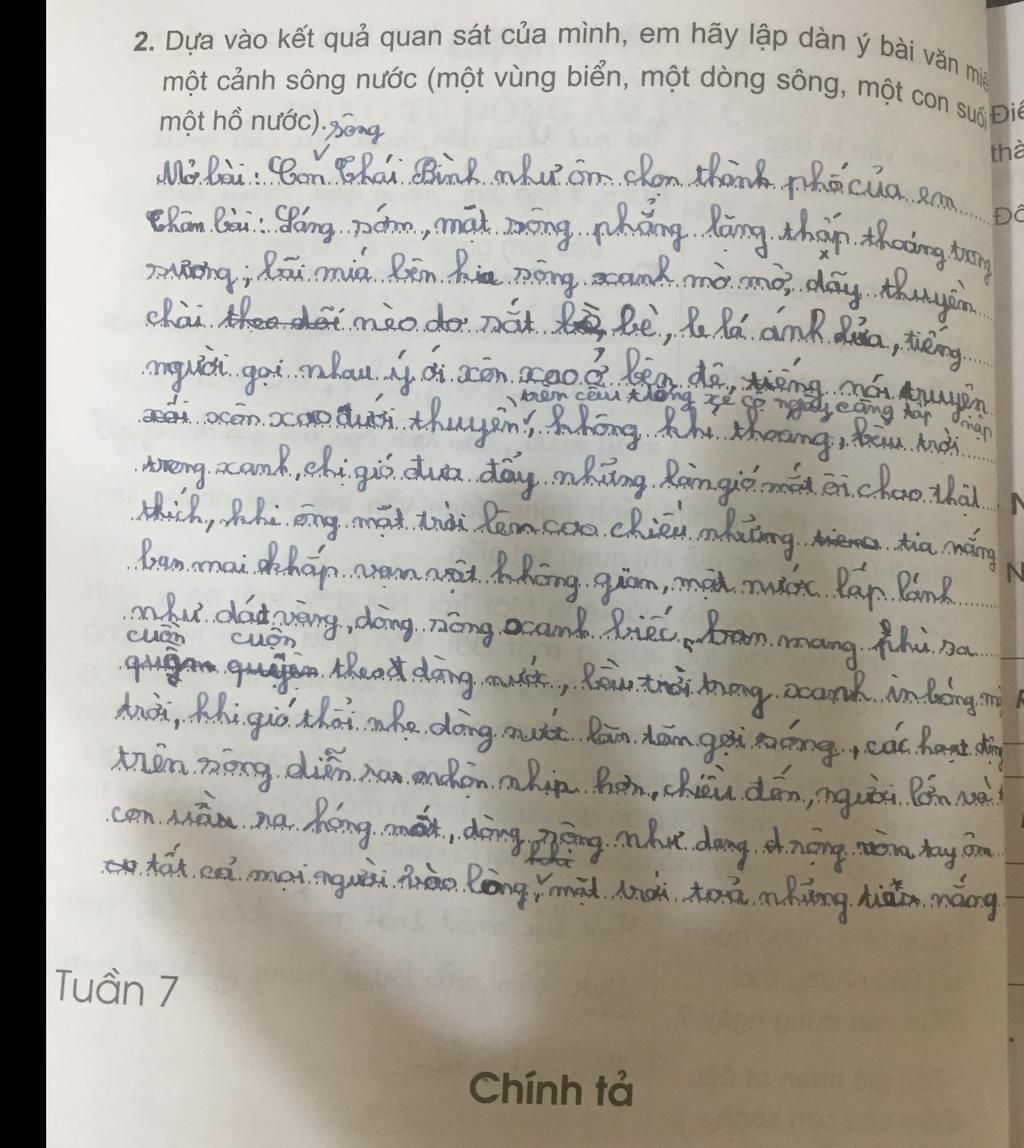 2. Dựa vào kết quả quan sát của mình, em hãy lập dàn ý bài văn miê
một cảnh sông nước (một vùng biển, một dòng sông, một con suối
một hồ nước).
sông
Mở bài: Con Thái Bình như ôm chọn thành phố của em
Thân bài: Sáng sớm, mặt sông phẳng lặng thấp thoáng trong
sương; bãi mía bên kia sông xanh mờ mờ, dãy thuyền
chài theo dõi nèo đơ sát bè, le lá ánh lửa, tiếng
người gọi nhau ý ới xôn xao ở bên đê, tiếng nói truyện
trên cầu tường xe cộ ngày càng tấp nập
xôn xao dưới thuyền, không khí thoáng, bầu trời
trong xanh, chị gió đưa đẩy những làn gió mát ôi chao thật
thích, khi ông mặt trời lên cao chiếu những tia nắng
ban mai khắp vạn vật không gian, mặt nước lấp lánh
như dát vàng, dòng sông xanh biếc, mang phù sa
cuồn cuộn
theo dòng nước, bầu trời trong xanh in bóng mặ
trời, khi gió thổi nhẹ dòng nước lăn tăn gợi sóng, các hoạt động
trên sông diễn ra nhộn nhịp hơn, chiều đến, người lớn và t
con ra hóng mát, dòng sông như dang rộng vòng tay ôm
khi
tất cả mọi người vào lòng, mặt trời toả những tia nắng
Tuần 7
Chính tả
Điề
thà
Đô
N
N